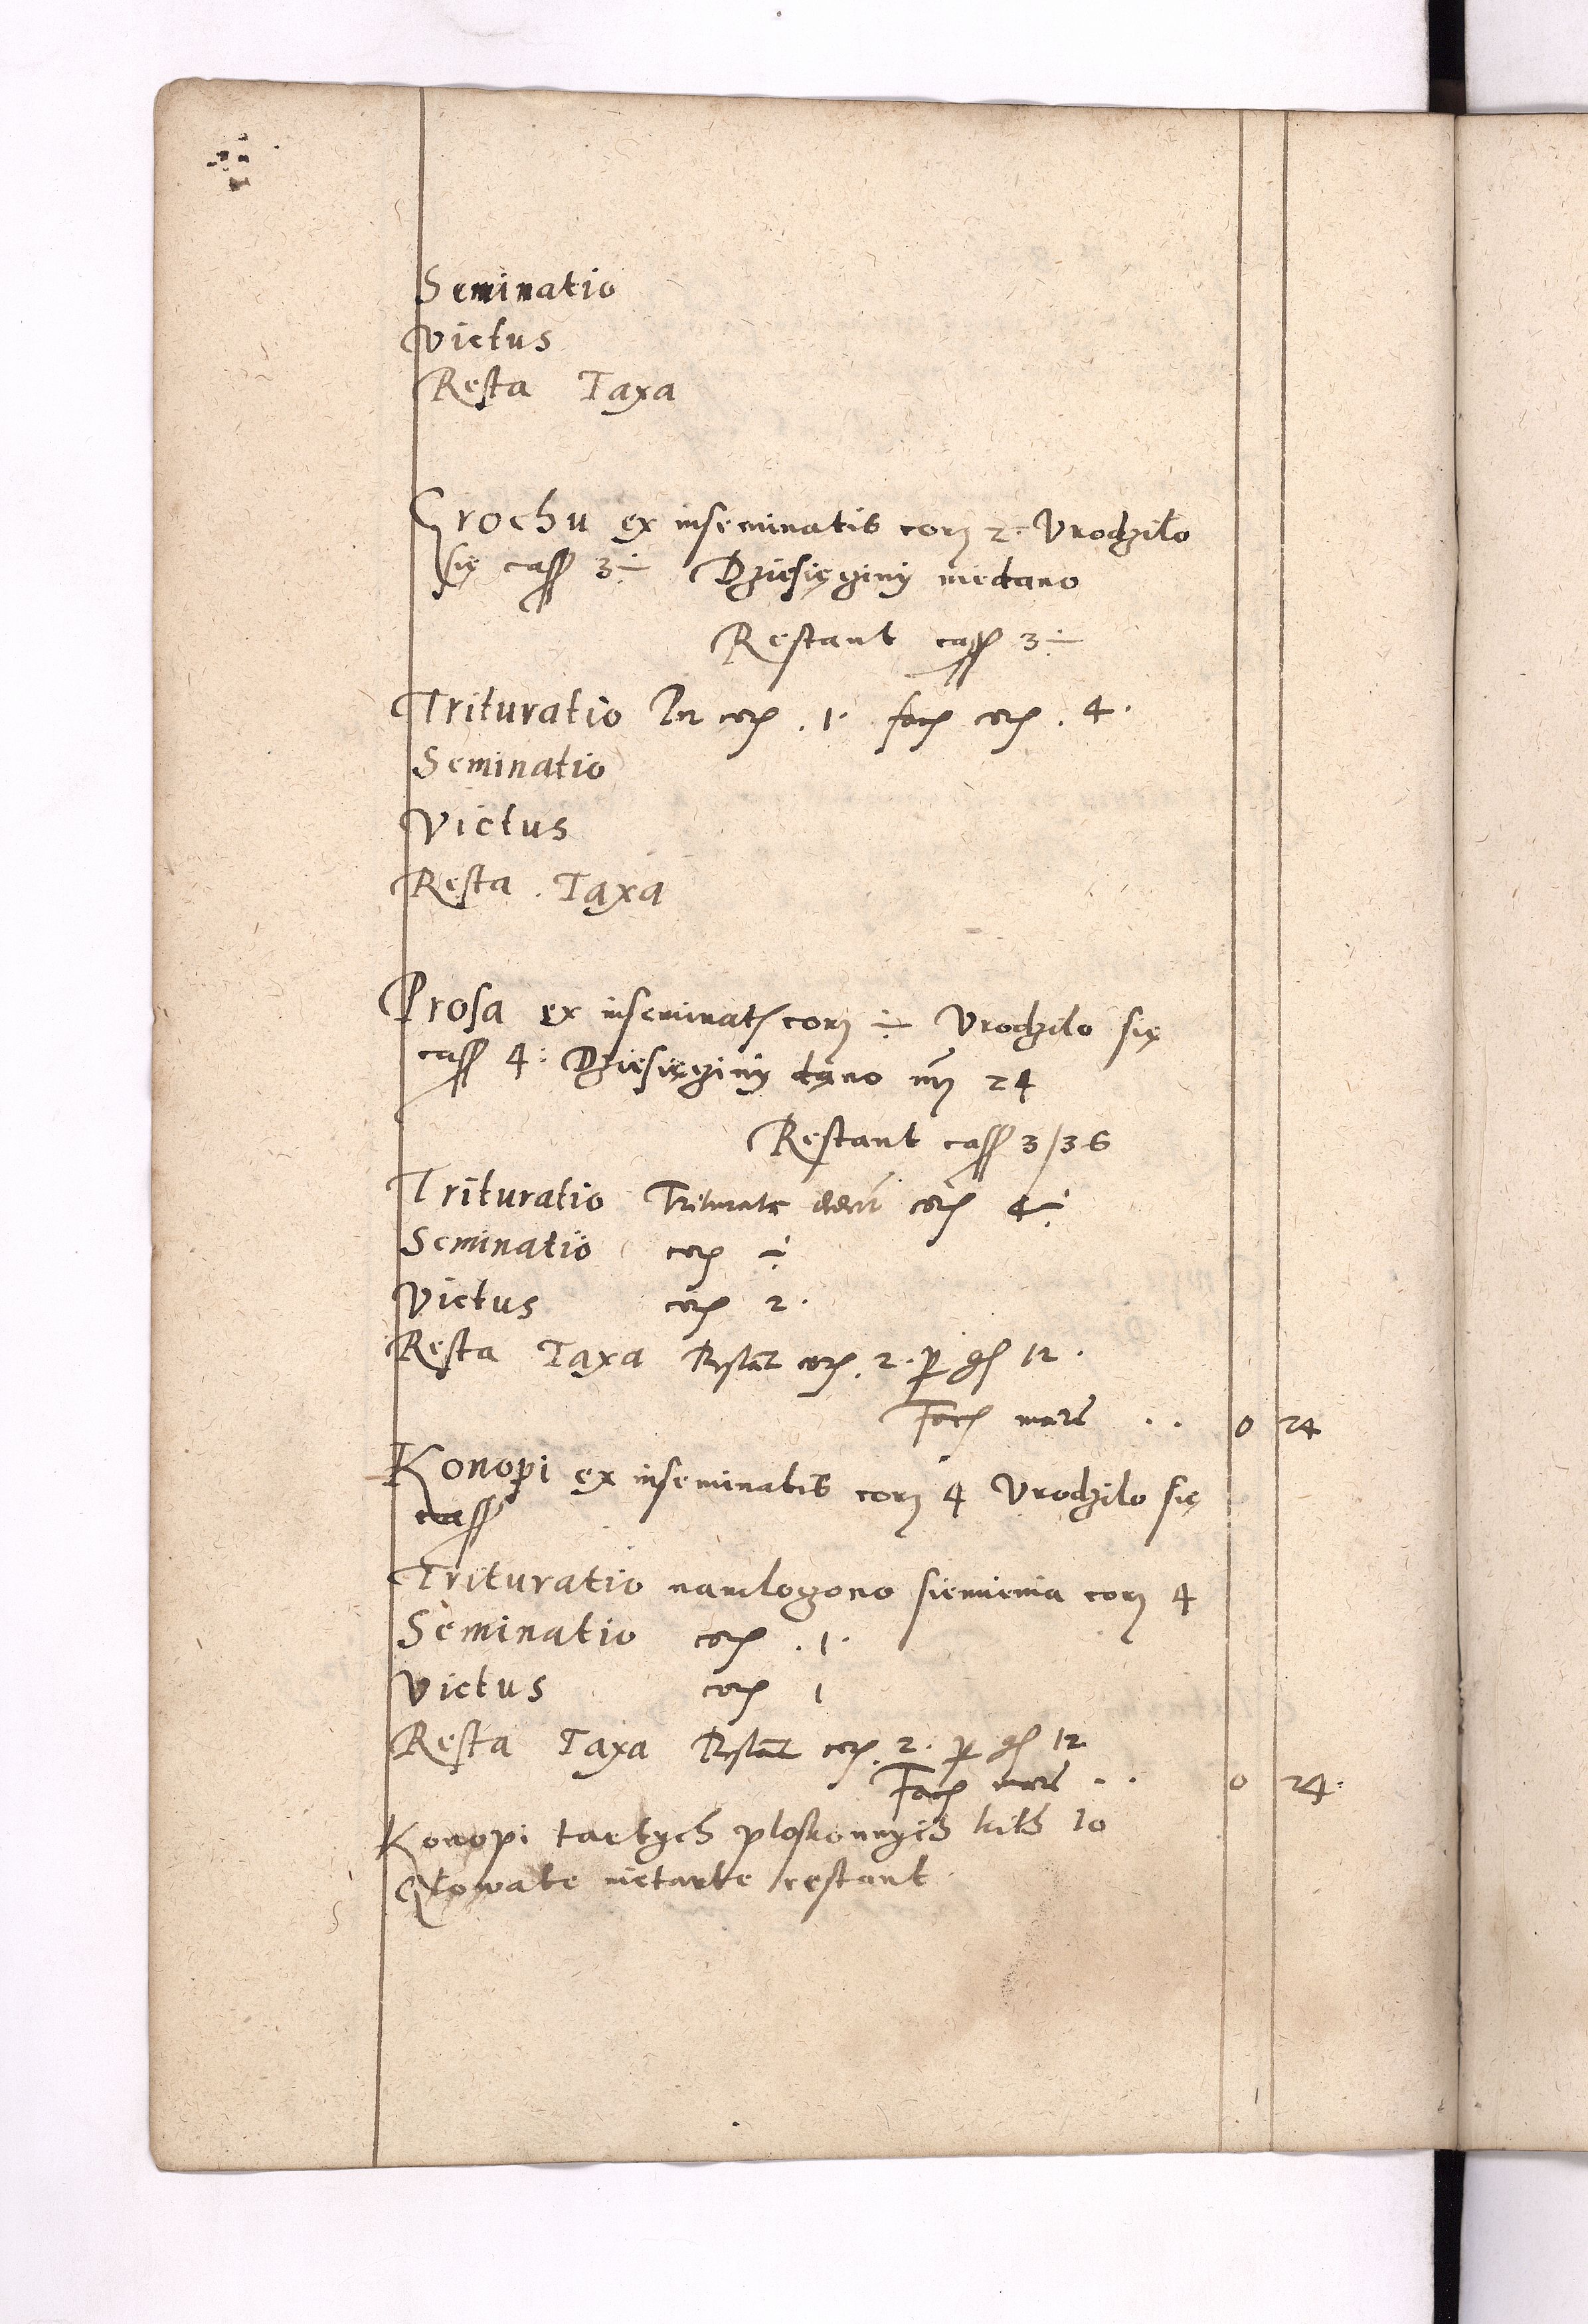 Seminatio
Victus
Resta Taxa
Grochu ex inseminatis corȝ 2 Vrodzilo
się cass 3 ÷ Dziesięginÿ niedano
Restant cass 3 ÷
Trituratio In cor . 1 . fac cor . 4 .
Seminatio
Victus
Resta . Taxa
Prosa ex inseminat corȝ ÷ Vrodzilo się
cass 4 : Dziesięginy dano 24
Restant cass 3/36
Trituratio Triturate cor 4 ÷
Seminatio cor ÷
Victus cor 2 .
Resta Taxa Restat cor . 2 . p gs 12 .
Fac mars . . 0 24
Konopi ex inseminatis corȝ 4 Vrodzilo się
cass
Trituratio namlogono siemienia corȝ 4
Seminatio cor . 1 .
Victus cor 1
Resta Taxa Restat cor . 2 . p gs 12
Fac mars . . 0 24
Konopi tartych ploskonnych kits 10
Glowate nietarte restant